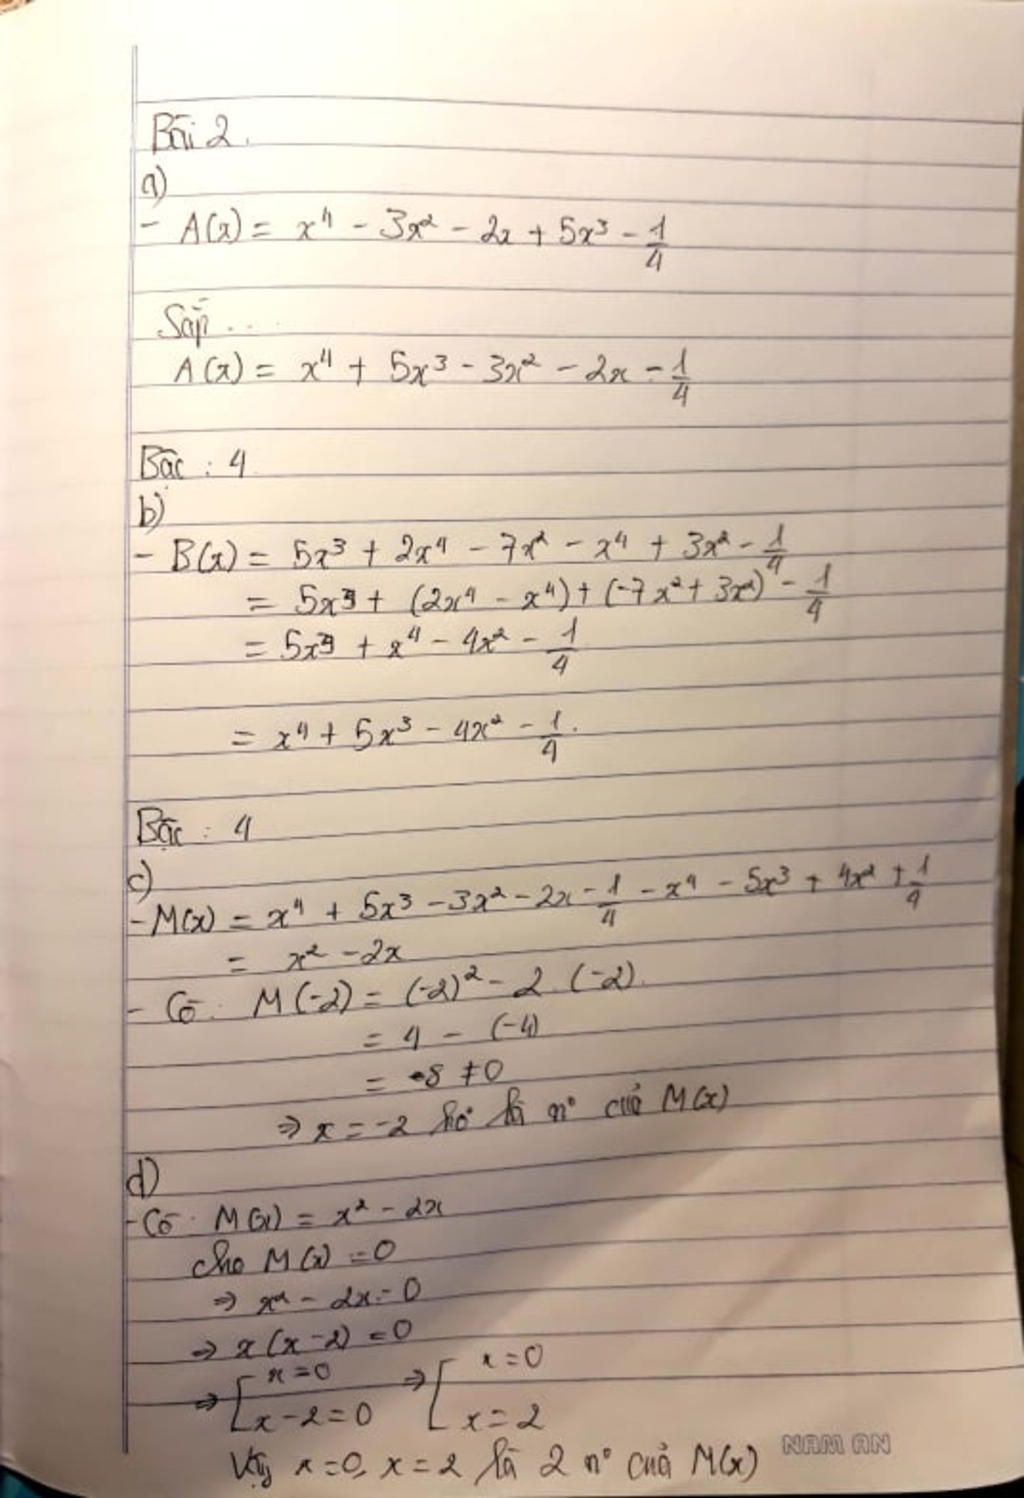 Bài 2.
a)
- A(x) = x⁴ - 3x² - 2x + 5x³ - 1/4
Sắp ...
A(x) = x⁴ + 5x³ - 3x² - 2x - 1/4
Bậc : 4
b)
- B(x) = 5x³ + 2x⁴ - 7x² - x⁴ + 3x² - 1/4
= 5x³ + (2x⁴ - x⁴) + (-7x² + 3x²) - 1/4
= 5x³ + x⁴ - 4x² - 1/4
= x⁴ + 5x³ - 4x² - 1/4.
Bậc : 4
c)
- M(x) = x⁴ + 5x³ - 3x² - 2x - 1/4 - x⁴ - 5x³ + 4x² + 1/4
= x² - 2x
- Có: M(-2) = (-2)² - 2.(-2).
= 4 - (-4)
= 8 ≠ 0
⇒ x = -2 ko là n° của M(x)
d)
- Có: M(x) = x² - 2x
Cho M(x) = 0
⇒ x² - 2x = 0
⇒ x(x-2) = 0
⇒ [ x = 0 ⇒ [ x = 0
x - 2 = 0 x = 2
Vậy x = 0, x = 2 là 2 n° của M(x)
NAM AN